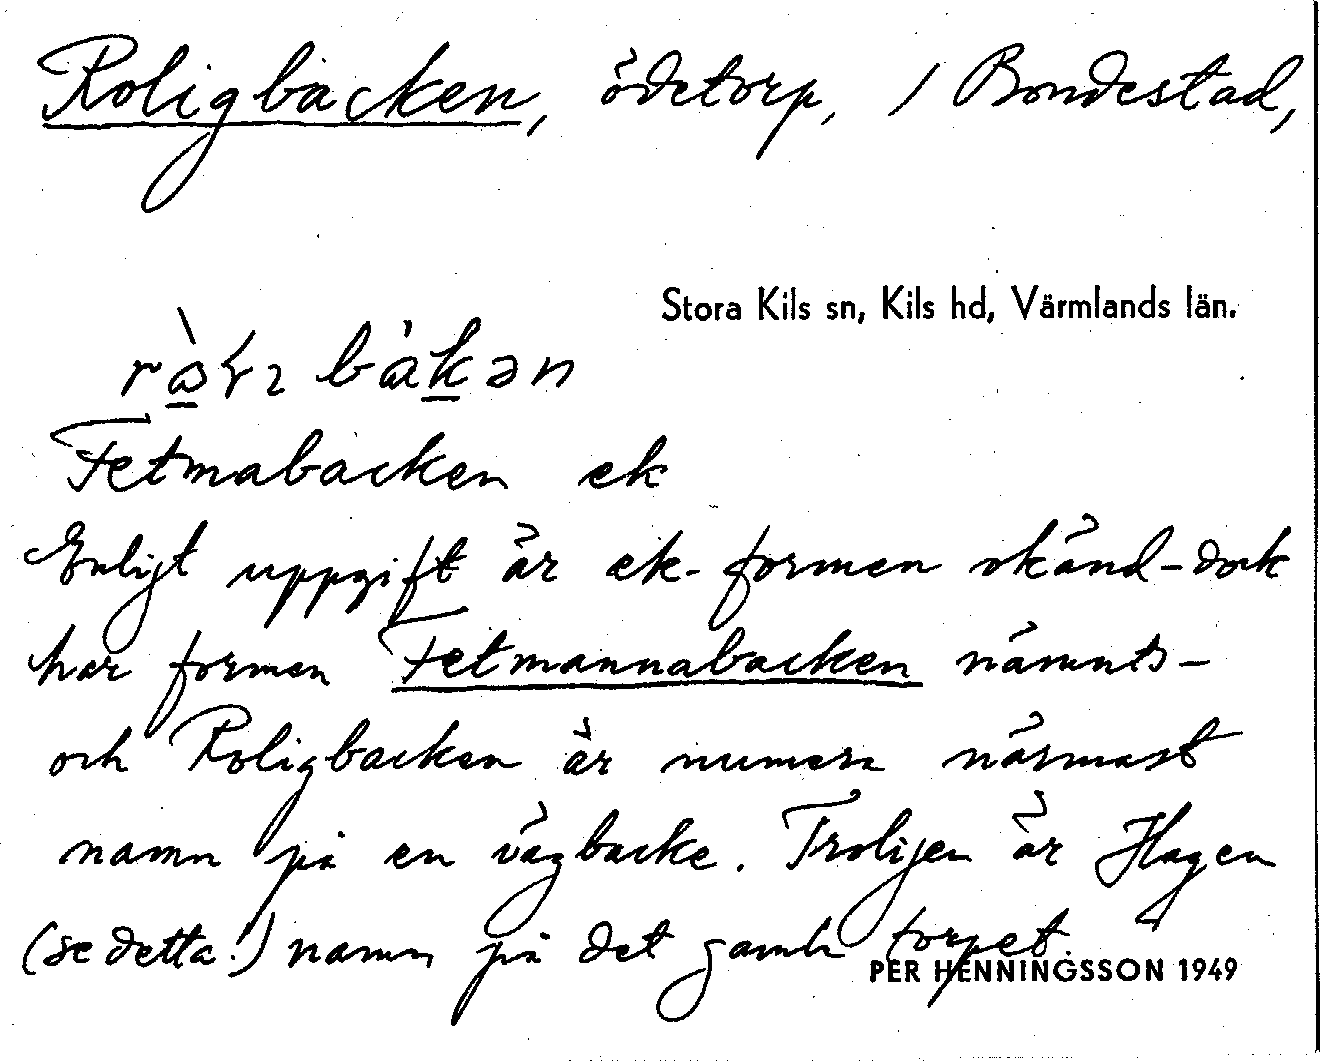 Roligbacken, ödetorp, / Bondestad,
Stora Kils sn, Kils hd, Värmlands län.
bàkən
Fetmabacken ek
Enligt uppgift är ek-formen okänd - dock
har formen Fetmannabacken nämnts -
och Roligbacken är numera närmast
namn på en vägbacke. Troligen är Hagen
(se detta!) namn på det gamla torpet.
PER HENNINGSSON 1949